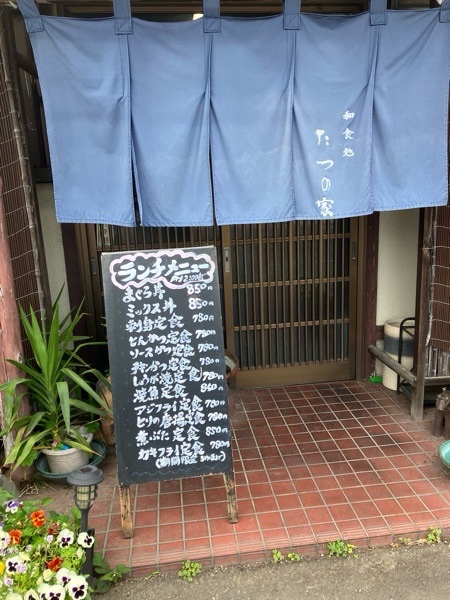 和食処
たつの家
ランチメニュー
まぐろ丼 850円
ミックス丼 850円
刺身定食 780円
とんかつ定食 780円
ソースかつ定食 780円
チキンかつ定食 780円
しょうが焼定食 780円
焼魚定食 840円
アジフライ定食 780円
とりの唐揚定食 780円
煮ぶた定食 850円
カキフライ定食 780円